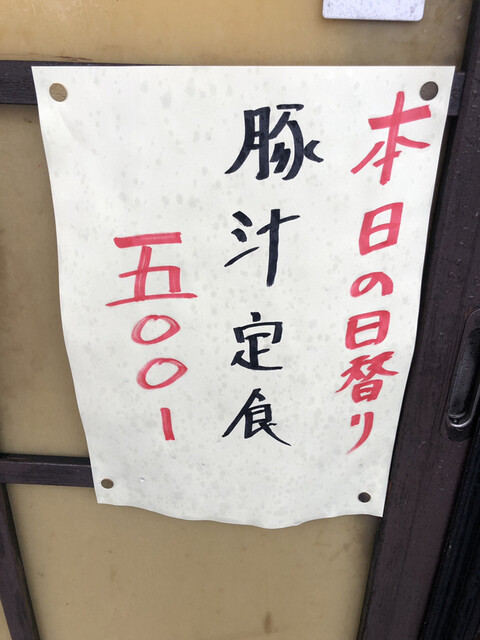 本日の日替り
豚汁定食
五〇〇ー